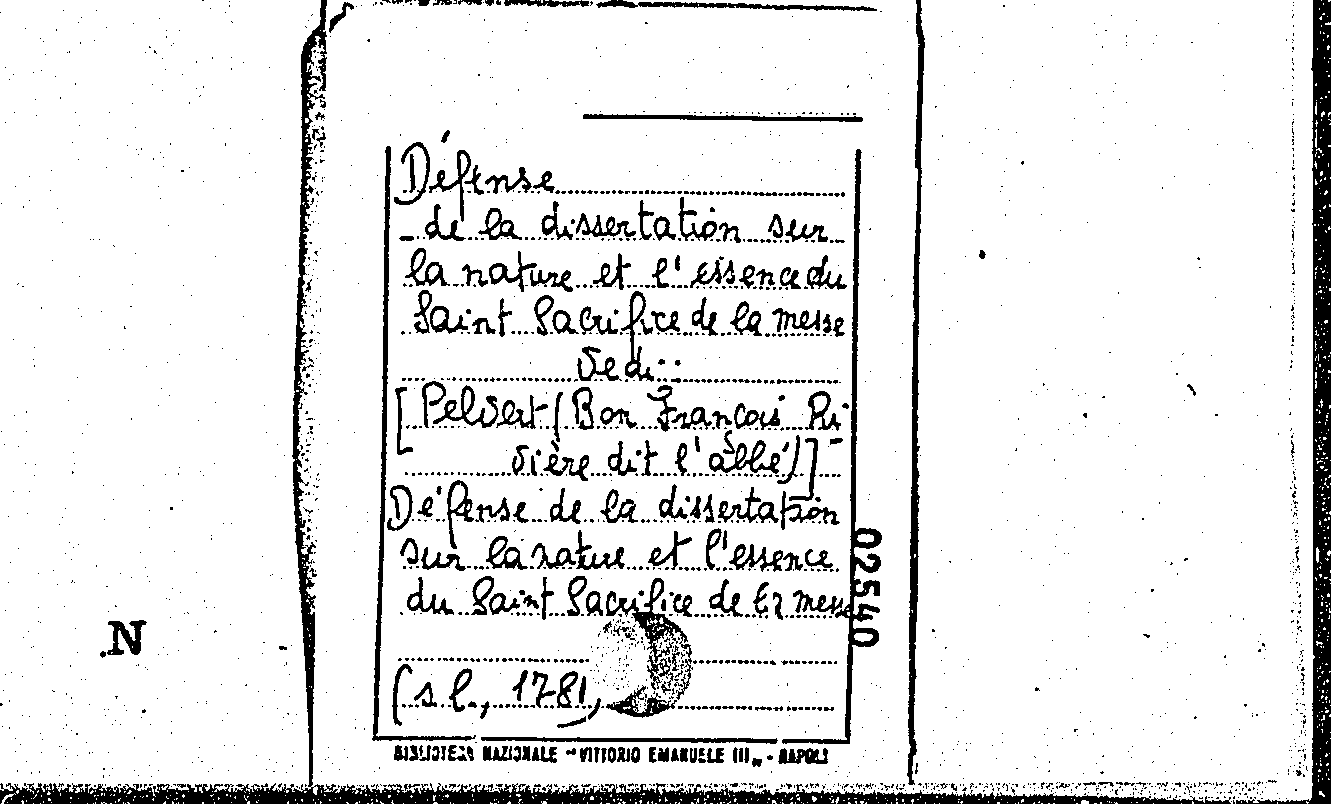 Défense
de la dissertation sur
la nature et l'essence du
Saint Sacrifice de la messe
Vedi:
[Pelvert (Bon François Ri-
vière dit l'abbé)]
Défense de la dissertation
sur la nature et l'essence
du Saint Sacrifice de la messe
(s.l., 1781,
BIBLIOTECA NAZIONALE "VITTORIO EMANUELE III„ - NAPOLI
02540
N